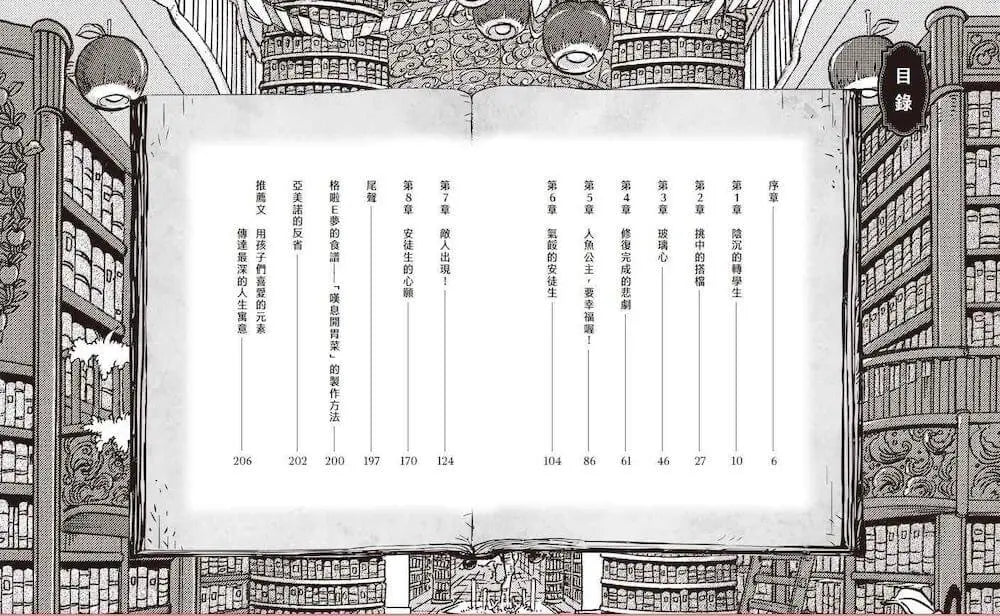 目錄
序章 6
第1章 陰沉的轉學生 10
第2章 挑中的搭檔 27
第3章 玻璃心 46
第4章 修復完成的悲劇 61
第5章 人魚公主，要幸福喔！ 86
第6章 氣餒的安徒生 104
第7章 敵人出現！ 124
第8章 安徒生的心願 170
尾聲 197
格啦E夢的食譜—「嘆息開胃菜」的製作方法 200
亞美諾的反省 202
推薦文 用孩子們喜愛的元素
傳達最深的人生寓意 206